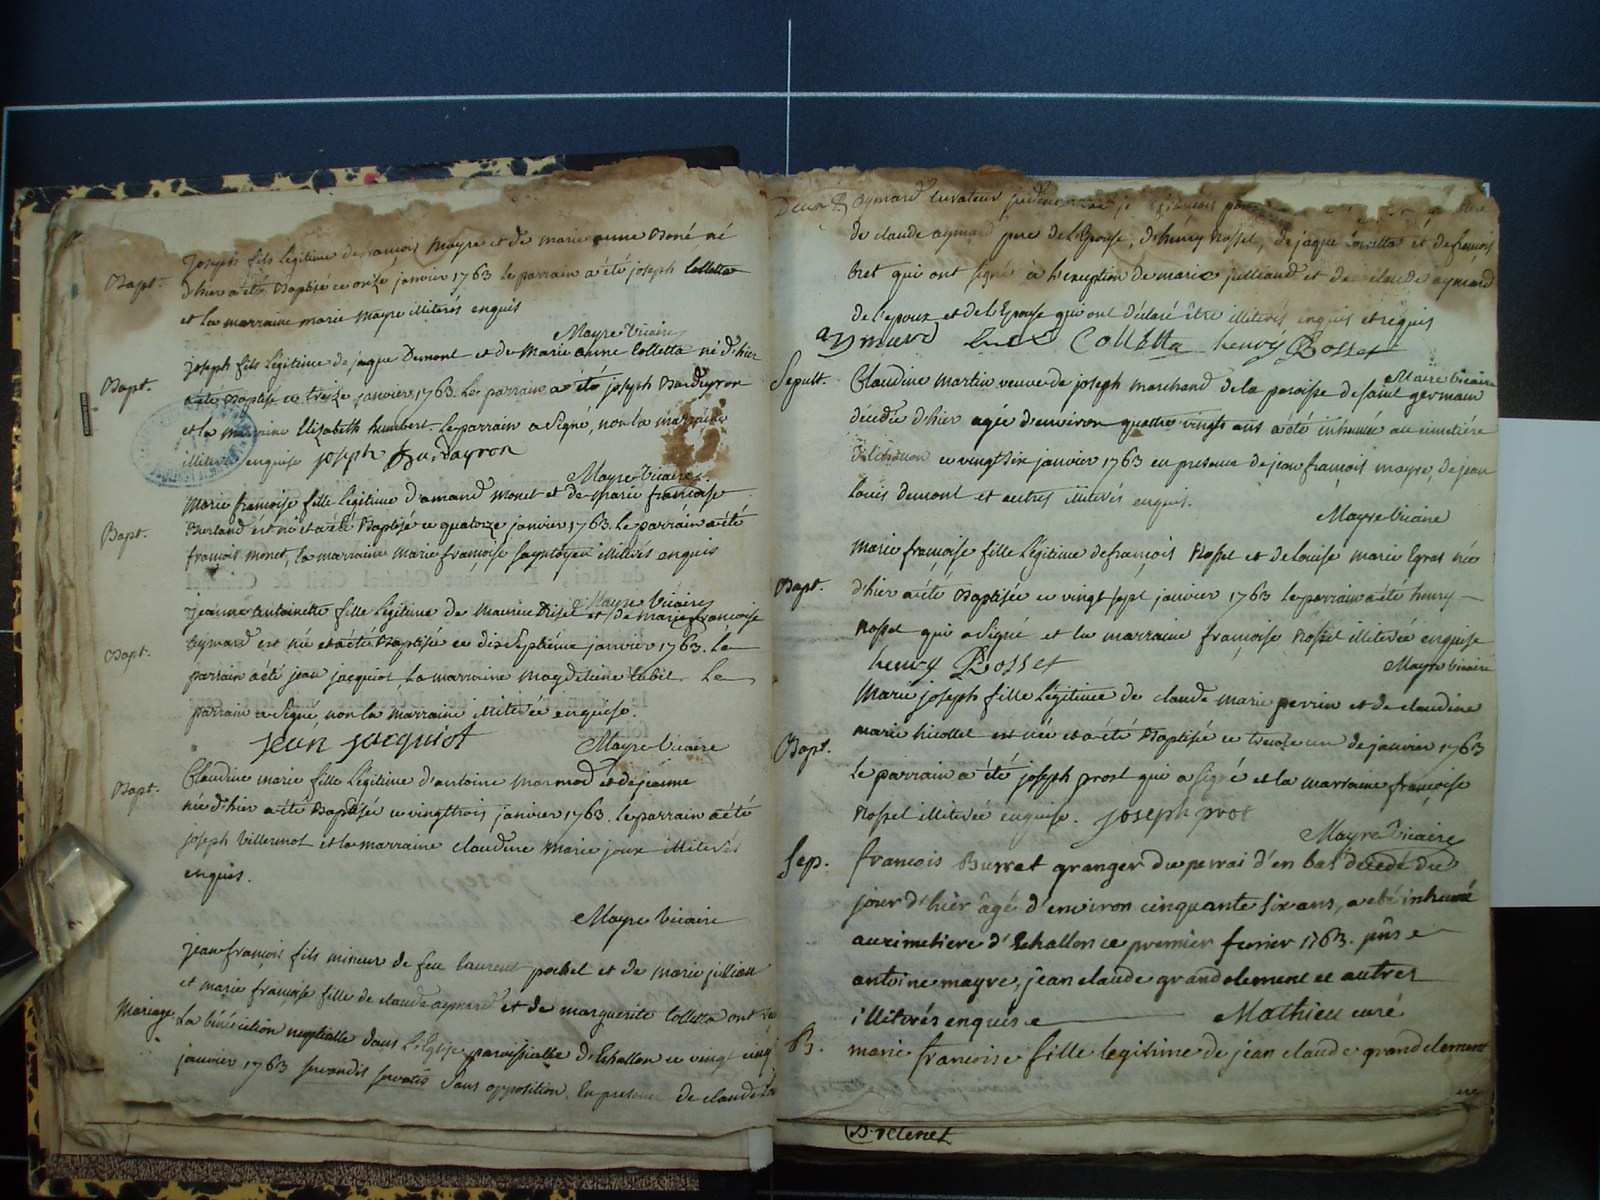 Bapt. Joseph fils légitime de françois Mayre et de marie anne Boné né
d'hier a été Baptisé ce onze janvier 1763 le parrain a été joseph Colletta
et la marraine marie Mayre illiterés enquis
Mayre Vicaire
Bapt. joseph fils légitime de jaque Dumont et de Marie anne Colletta né d'hier
a été Baptisé ce treize janvier 1763. Le parrain a été joseph Bardeyron
et la marraine Elizabeth humbert. Le parrain a signé, non la marraine
illiterée enquise joseph Burdayron
Mayre Vicaire.
Bapt. Marie françoise fille légitime d'amand Monet et de Marie françoise
Berland est né et a été Baptisé ce quatorze janvier 1763. Le parrain a été
françois Monet, la marraine Marie françoise illiterés enquis
Mayre Vicaire
Bapt. jeanne antoinette fille légitime de Maurice et de Marie françoise
aymard est née et a été Baptisée ce dix septième janvier 1763. Le
parrain a été jean jacquiot, la marraine Magdeleine Le
parrain a signé, non la marraine illiterée enquise.
jean jacquiot Mayre Vicaire
Bapt. Claudine marie fille légitime d'antoine Marmod et de jeanne
née d'hier a été Baptisée ce vingt trois janvier 1763. le parrain a été
joseph Villermot et la marraine claudine Marie joux illiterés
enquis.
Mayre Vicaire
jean françois fils mineur de feu laurent pochet et de Marie jullian
et marie françoise fille de claude aymard et de marguerite Colletta ont
Mariage La bénédiction nuptialle dans L'Eglise paroissialle d'Echallon ce vingt cinq
janvier 1763 servandis servatis Sans opposition. En presence de claude
aymard curateur
de claude aymard pere de l'Epouse, d'henry Rosset, de jaque Colletta et de françois
bret qui ont signé à l'exception de marie julliand et de claude aymard
de l'epoux et de l'Epouse qui ont déclaré être illiterés enquis et requis
aymard Colletta henry Rosset
Maire Vicaire
Sepult. Claudine Martin veuve de joseph marchand de la paroisse de saint germain
décédée d'hier agée d'environ quatre vingt ans a été inhumée au cimetiére
d'Echallon ce vingt six janvier 1763 en presence de jean françois mayre, de jean
Louis Dumont et autres illiterés enquis.
Mayre Vicaire
Marie françoise fille légitime de françois Rosset et de Louise marie Egraz née
Bapt. d'hier a été Baptisée ce vingt sept janvier 1763 le parrain a été henry
Rosset qui a signé et la marraine françoise Rosset illiterée enquise
henry Rosset Mayre Vicaire
Marie joseph fille légitime de claude marie perrin et de claudine
Bapt. marie Nicollet est née et a été Baptisée ce trente un de janvier 1763
Le parrain a été joseph prost qui a signé et la marraine françoise
Rosset illiterée enquise. joseph pros
Mayre Vicaire
Sep. francois Burret granger du perrai d'en bas décedé du
jour d'hier âgé d'environ cinquante six ans, a eté inhumé
au cimetiere d'Echallon ce premier fevrier 1763. pns e
antoine mayre, jean claude grandclement et autres
illiterés enquis e Mathieu curé
B. marie francoise fille legitime de jean claude grandclement